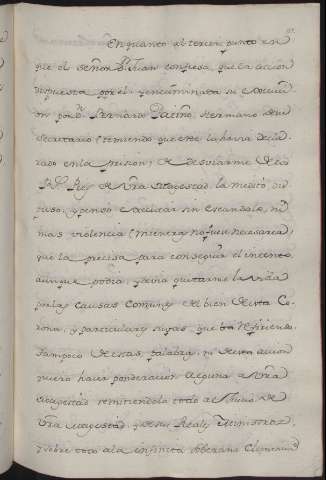 En quanto al tercer punto en
que el señor Dn. Juan confiesa, que la accion
dispuesta por el y encaminada su execucion
por Dn. Bernardo Patiño, hermano de su
Secretario (temiendo que este lo havia decla
rado en la prision) de desviarme de los
Rs. Pies de Vra Magestad, la medito, dis
puso, y penso executar sin escandalo, ni
mas violencia (si en ella no fuese necesaria)
que la precisa para conseguir el intento,
aunque podia, y devia quitarme la vida
por las causas comunes del bien de esta Co
rona, y particulares suyas, que va refiriendo.
Tampoco de estas palabras, ni de esta accion
quiero hacer ponderacion alguna a Vra
Magestad remitiendolo todo al Juicio de
Vra Magestad, y de sus Reales Ministros,
y sobre todo a la infinita soberana Clemencia